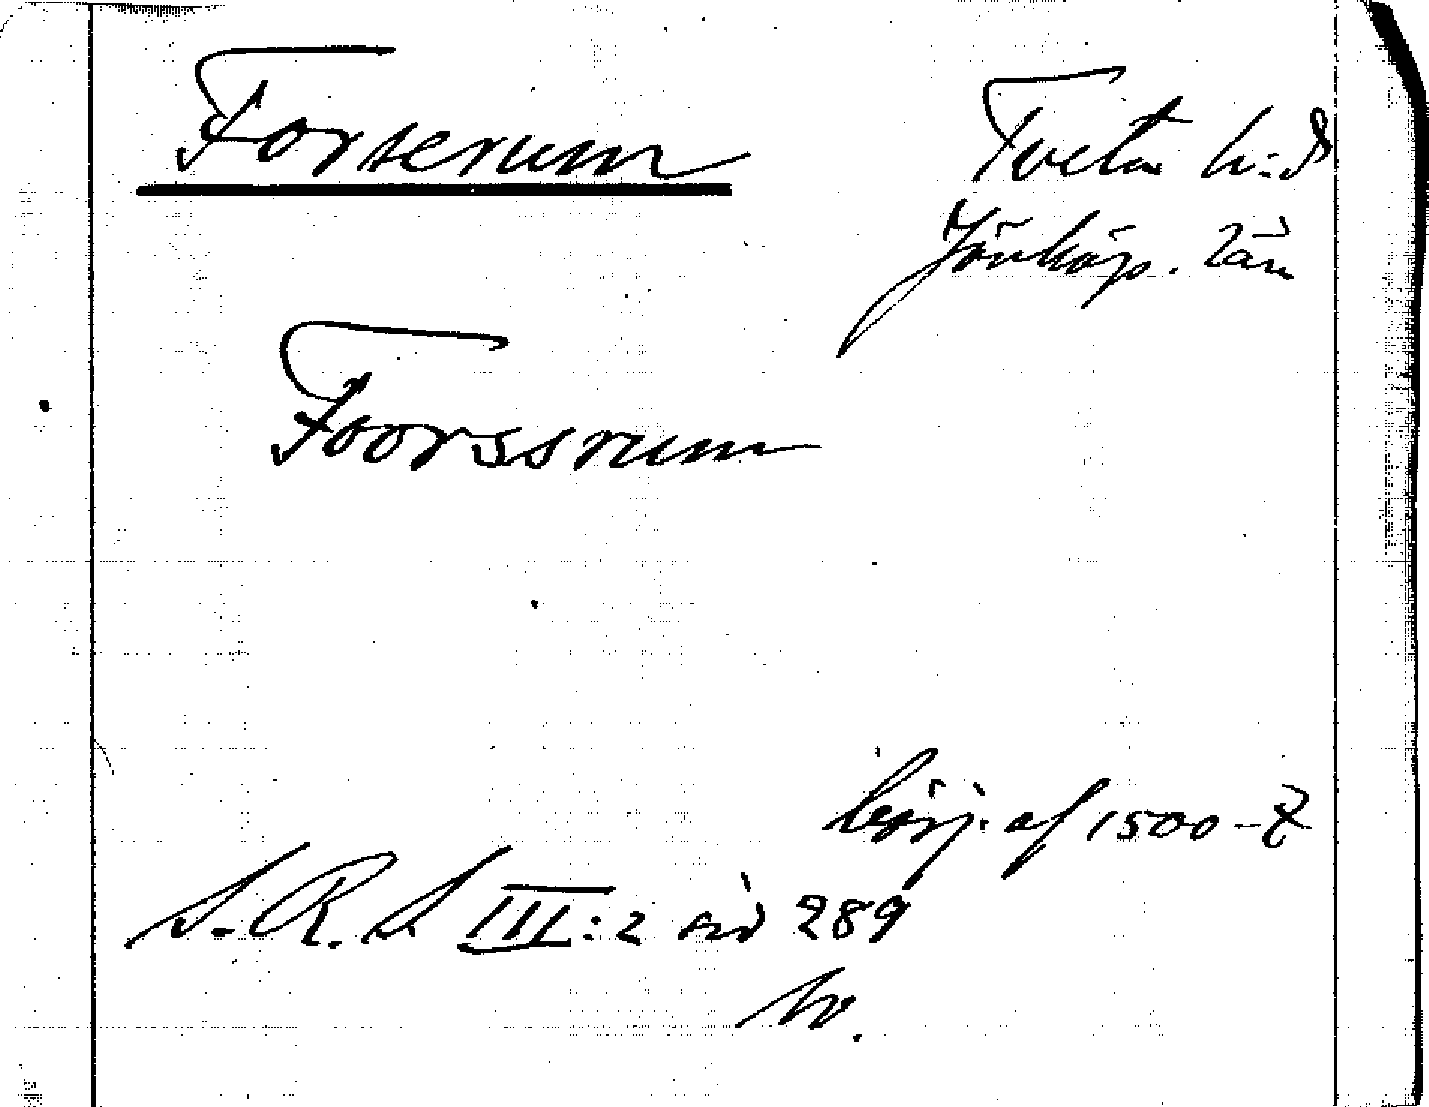 Forserum
Tveta h:d
Jönköp. län
Foorssrum
börj. af 1500-t
S. R. S III:2 sid 289